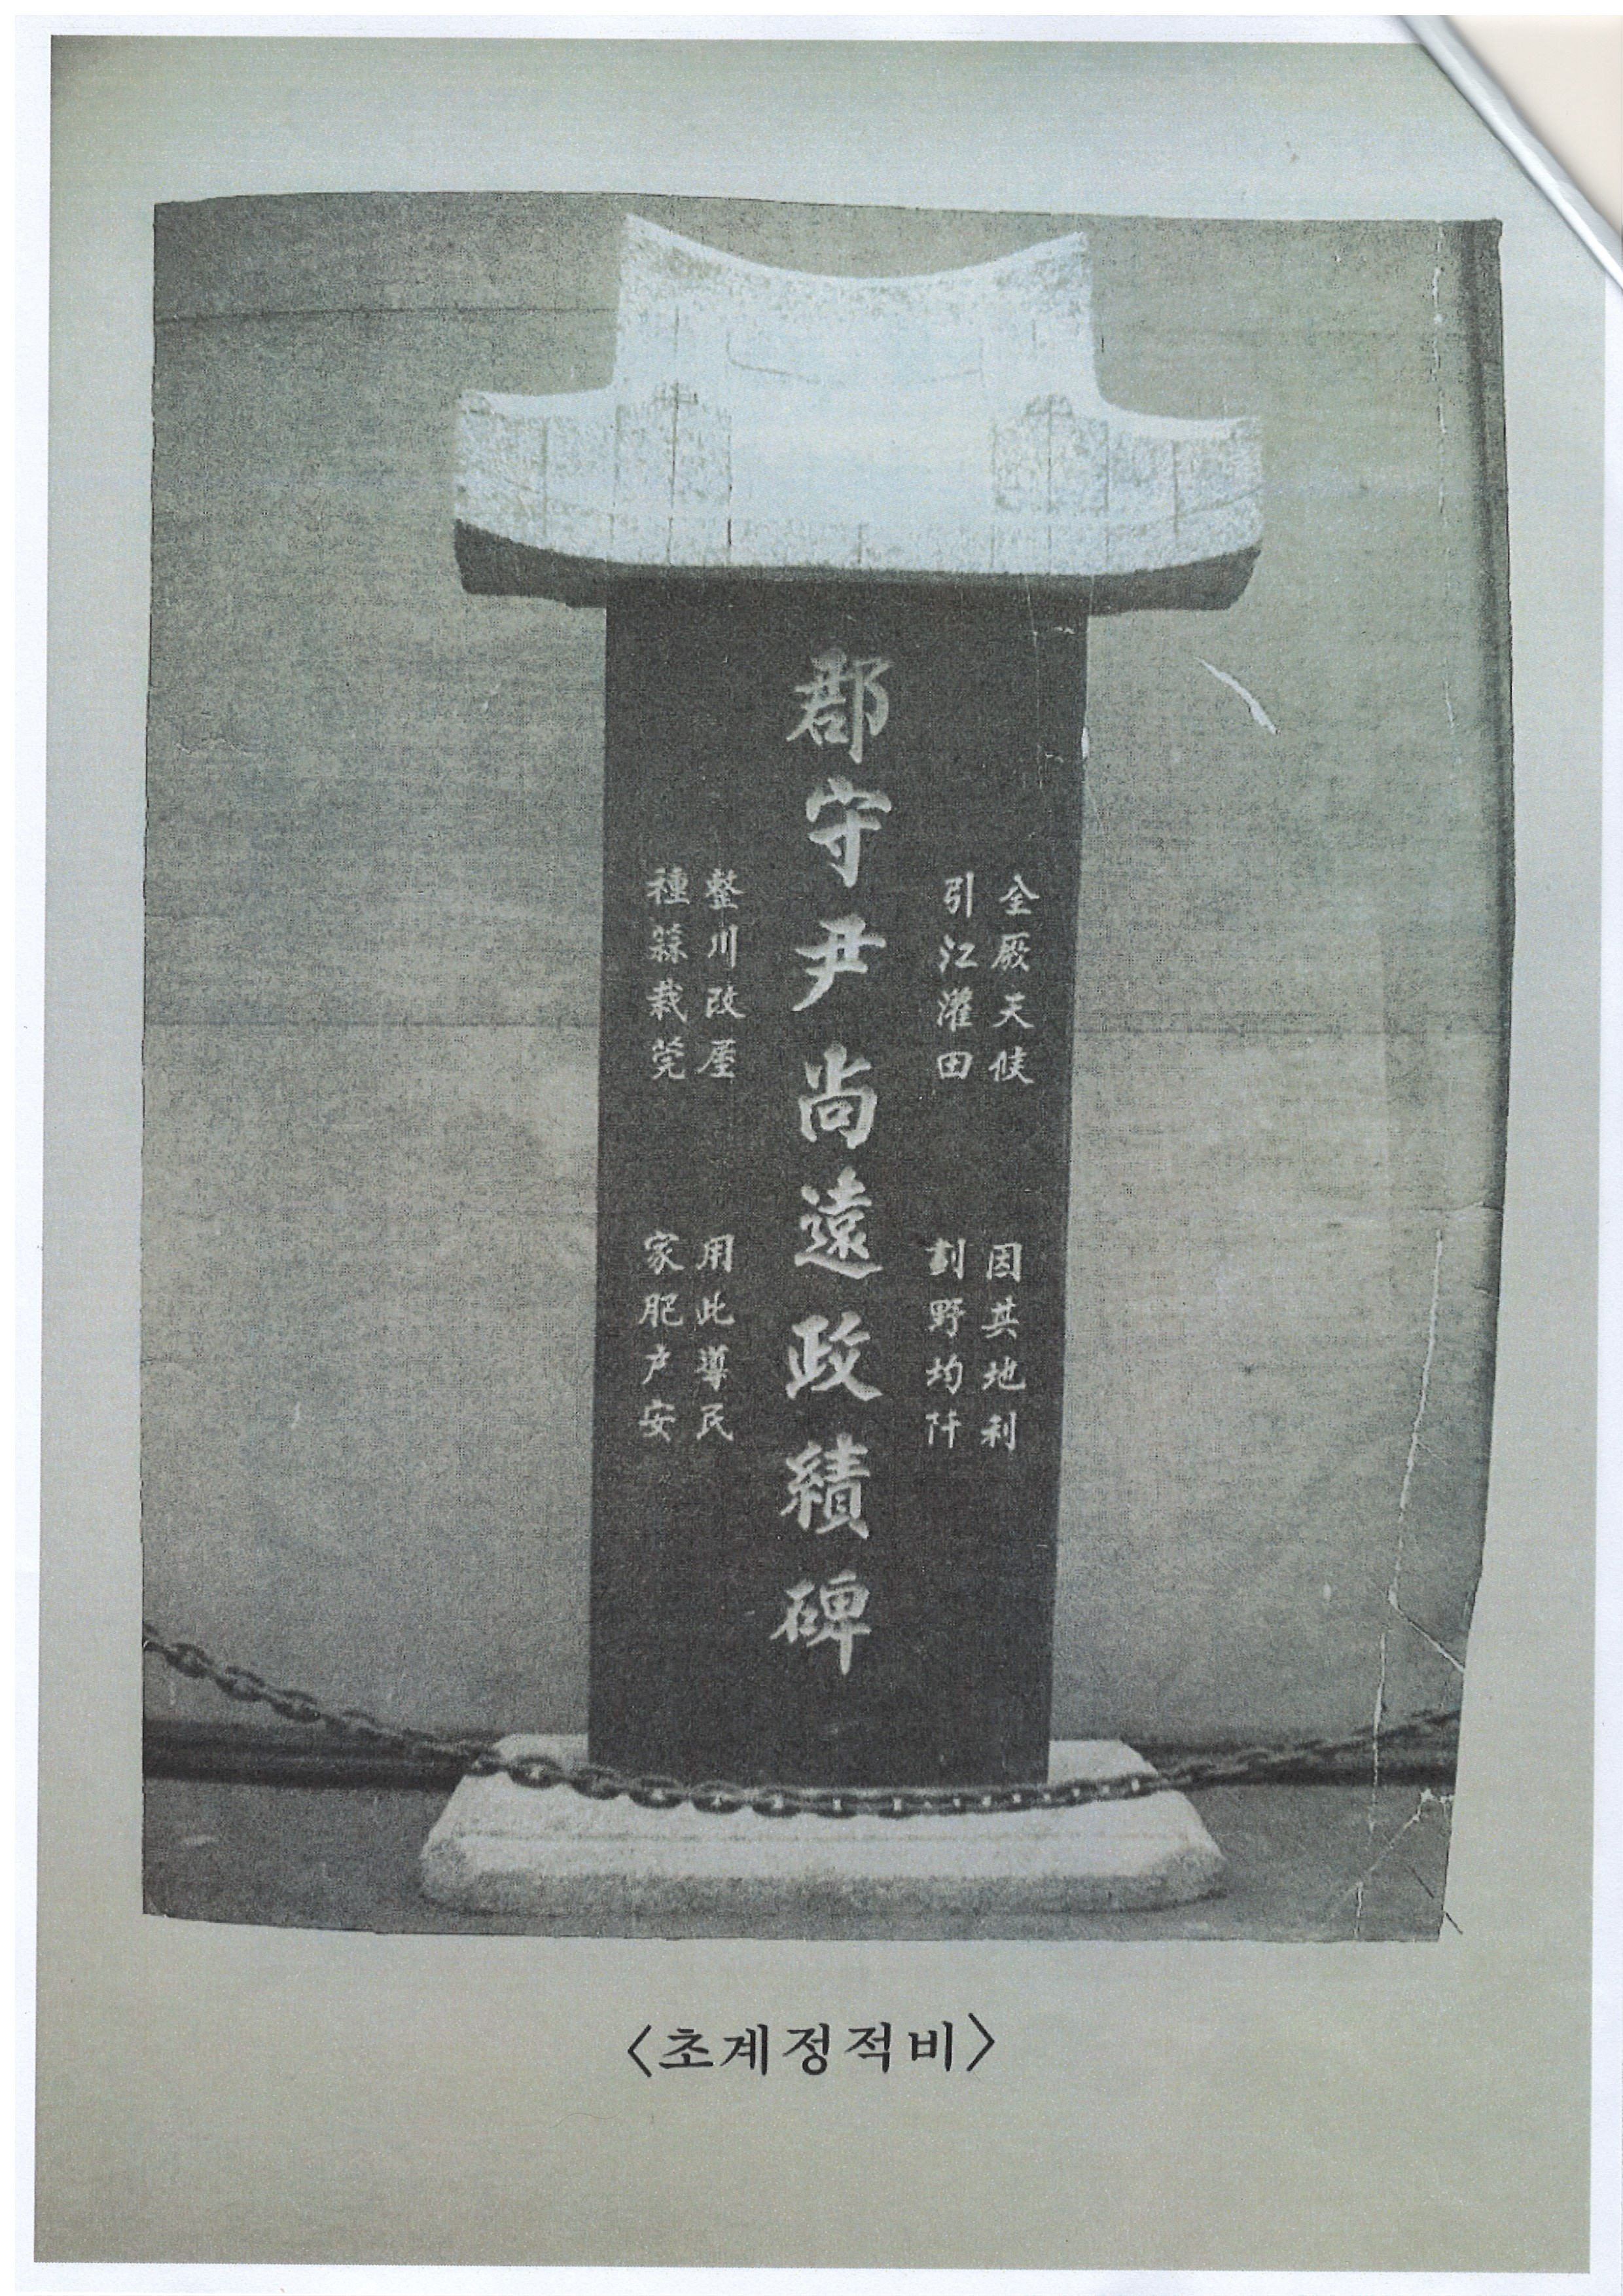 全厥天候
因其地利
引江灌田
劃野均阡
郡守尹尚遠政績碑
整川改屋
用此導民
種蒜栽莞
家肥户安
<초계정적비>